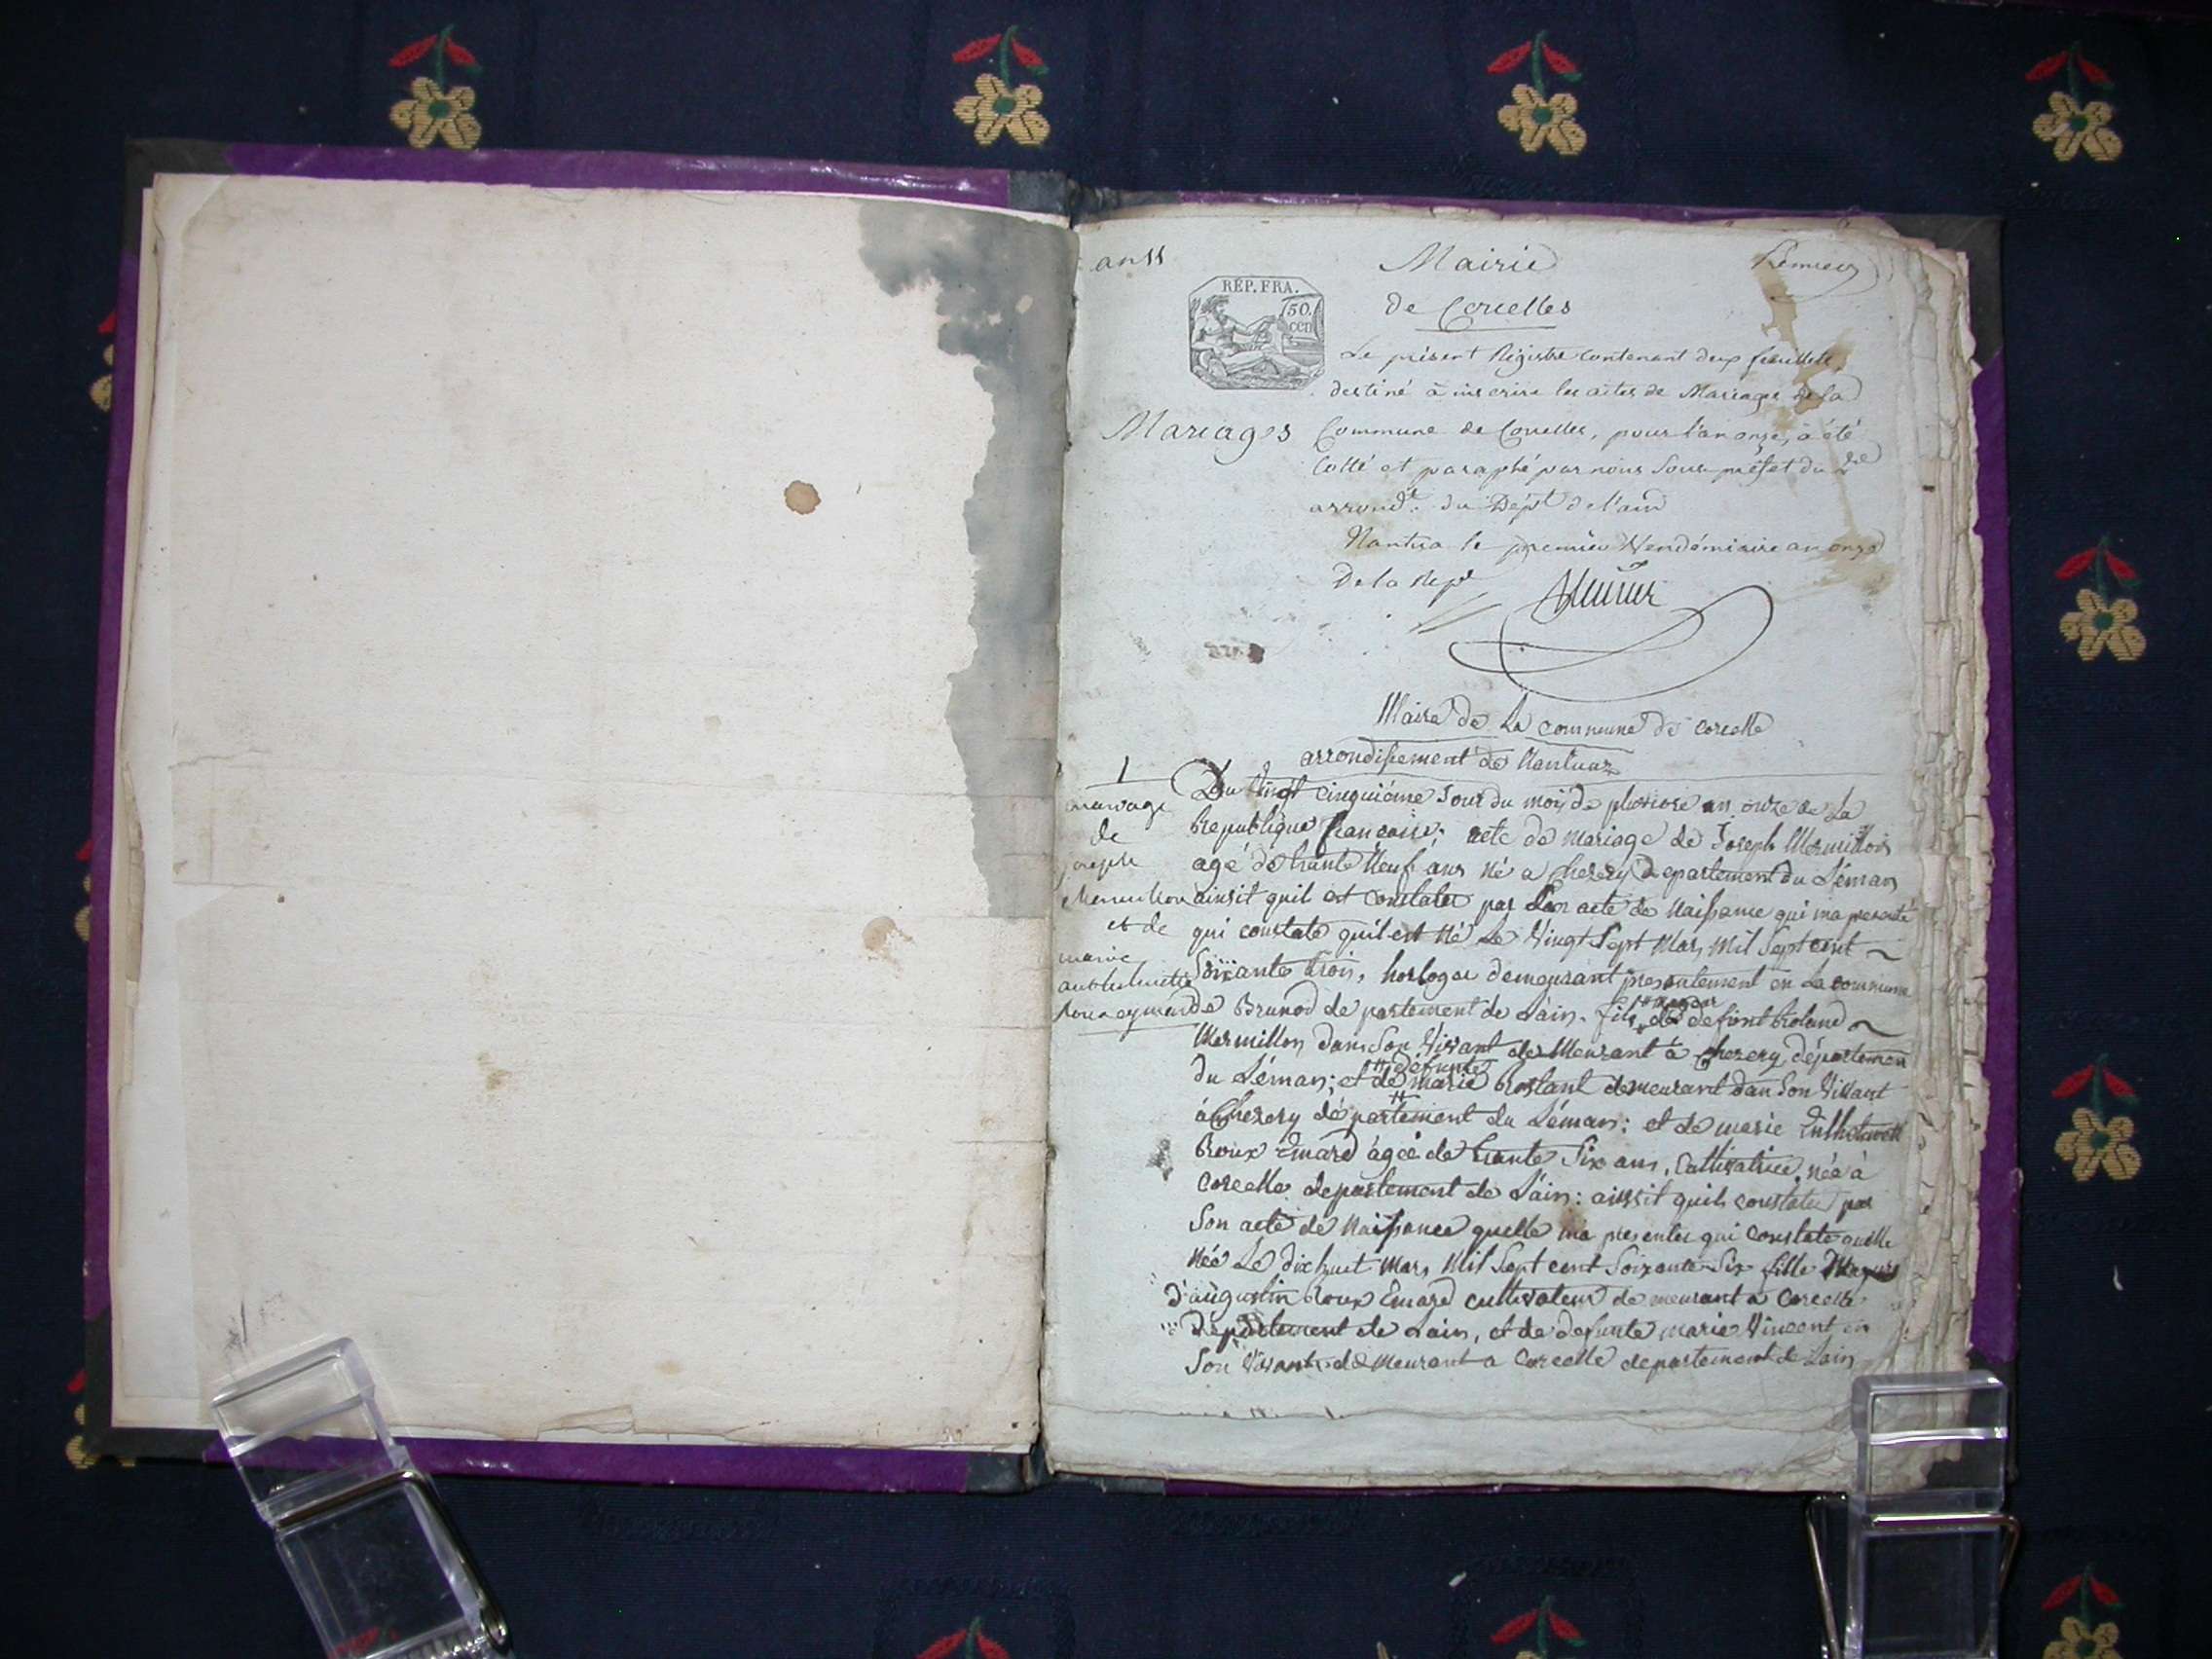 an 11
Mairie
de Corcelles
REP. FRA.
50.
cen
Le présent Régistre contenant deux feuillets,
destiné à inscrire les actes de Mariages de la
Mariages
Commune de Corcelles, pour l'an onze, à été
Cotté et paraphé par nous Sous-préfet du 2e
arrondt. du Dépt de l'ain
Nantua le premier Vendémiaire an onze
De la Repe
Maire de La commune de corcelle
arrondissement de Nantua
1
mariage
de
joseph
Mermillon
et de
marie
Du Vingt cinquiéme Jour du mois de pluviose an onze de La
Republique francaise; acte de mariage de Joseph Mermillon
agé de trante Neuf ans Né a Chezery Departement du Léman
ainsit quil est constater par Son acte de Naissance qui ma presenté
qui constate quil est Né Le Vingt Sept Mars Mil Sept cent
Soixante trois, horloger demeurant presentement en La commune
de Brunod de partement de Lain. fils de defunt Roland
Mermillon dans Son Vivant demeurant à Chezery département
du Léman; et de defunte marie Rostant demeurant dan Son Vivant
à Chezery département du Léman: et de marie
Roux Emard âgée de trante Six ans, Cultivatrice, née à
Corcelle departement de L'ain: ainsit quil constater par
Son acte de Naissance quelle ma presenter qui constate quelle
Née Le dix huit Mars Mil Sept cent Soixante Six fille
d'augustin Roux Emard cultivateur demeurant a Corcelle
Departement de Lain, et de defunte marie Vincent en
Son Vivant demeurant a Corcelle departement de Lain